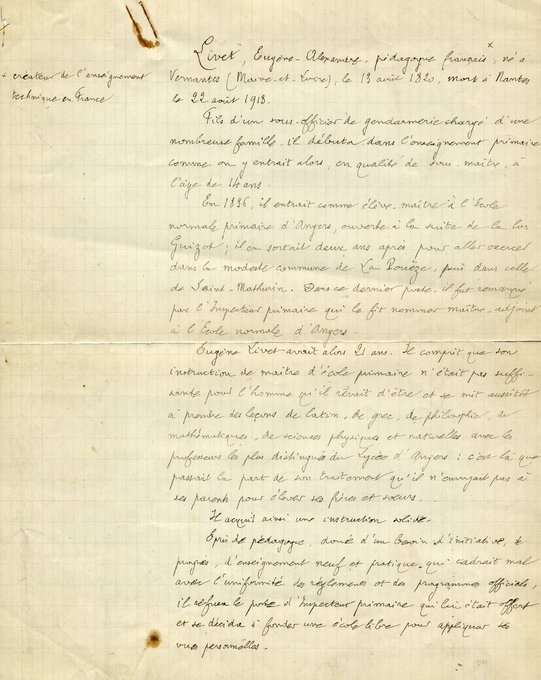 Livet, Eugène-Alexandre, pédagogue français, × né à
Vernantes (Maine-et-Loire), le 13 avril 1820, mort à Nantes
le 22 août 1913.
× créateur de l'enseignement
technique en France
Fils d'un sous-officier de gendarmerie chargé d'une
nombreuse famille, il débuta dans l'enseignement primaire
comme on y entrait alors, en qualité de sous-maître, à
l'âge de 14 ans.
En 1836, il entrait comme élève-maître à l'Ecole
normale primaire d'Angers, ouverte à la suite de la loi
Guizot; il en sortait deux ans après pour aller exercer
dans la modeste commune de La Pouëze, puis dans celle
de Saint-Mathurin. Dans ce dernier poste, il fut remarqué
par l'Inspecteur primaire qui le fit nommer maître-adjoint
à l'École normale d'Angers.
Eugène Livet avait alors 21 ans. Il comprit que son
instruction de maître d'école primaire n'était pas suffi-
sante pour l'homme qu'il rêvait d'être et se mit aussitôt
à prendre des leçons de latin, de grec, de philosophie, de
mathématiques, de sciences physiques et naturelles avec les
professeurs les plus distingués du Lycée d'Angers: c'est là que
passait la part de son traitement qu'il n'envoyait pas à
ses parents pour élever ses frères et sœurs.
Il acquit ainsi une instruction solide.
Epris de pédagogie, doué d'un besoin d'initiative, de
progrès, d'enseignement neuf et pratique qui cadrait mal
avec l'uniformité des règlements et des programmes officiels,
il refusa le poste d'Inspecteur primaire qui lui était offert
et se décida à fonder une école libre pour appliquer ses
vues personnelles.